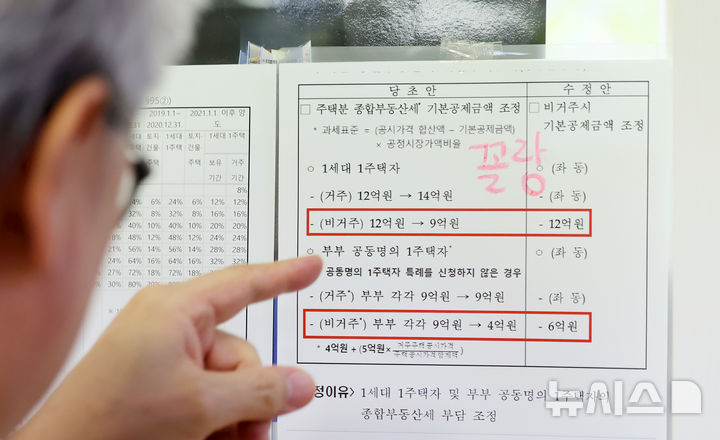 995②)
2019.1.1~
2020.12.31.
2021.1.1 이후 양
도
토지·
건물
1세대
1주택
토지
건물
1세대 1주택
보유
기간
거주
기간
8%
24% 6% 24% 6% 12% 12%
당초안
수정안
□ 주택분 종합부동산세 기본공제금액 조정
□ 비거주시
기본공제금액 조정
* 과세표준 = (공시가격 합산액 - 기본공제금액)
× 공정시장가액비율
꼴랑
○ 1세대 1주택자
○ (좌 동)
- (거주) 12억원 → 14억원
- (좌 동)
- (비거주) 12억원 → 9억원
- 12억원
○ 부부 공동명의 1주택자*
○ (좌 동)
공동명의 1주택자 특례를 신청하지 않은 경우
- (거주*) 부부 각각 9억원 → 9억원
- (좌 동)
- (비거주*) 부부 각각 9억원 → 4억원
- 6억원
* 4억원 + (5억원×거주주택공시가격/주택공시가격합계액)
정이유> 1세대 1주택자 및 부부 공동명의 1주택자의
종합부동산세 부담 조정
뉴시스